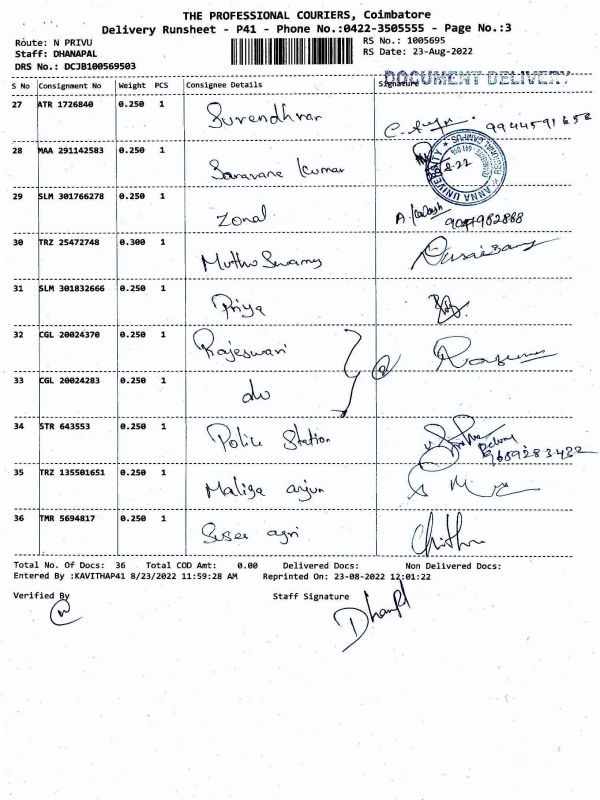 THE PROFESSIONAL COURIERS, Coimbatore
Delivery Runsheet - P41 - Phone No.:0422-3505555 - Page No.:3
Route: N PRIVU
Staff: DHANAPAL
DRS No.: DCJB100569503
RS No.: 1005695
RS Date: 23-Aug-2022
DOCUMENT DELIVERY
S No Consignment No Weight PCS Consignee Details Signature
27 ATR 1726840 0.250 1 Surendhran
28 MAA 291142583 0.250 1 Saravana Kumar
ANNA UNIVERSITY
29 SLM 301766278 0.250 1 Zonal
30 TRZ 25472748 0.300 1 Muthu Swamy
31 SLM 301832666 0.250 1 Priya
32 CGL 20024370 0.250 1 Rajeswari
33 CGL 20024283 0.250 1 do
34 STR 643553 0.250 1 Police Station
35 TRZ 135501651 0.250 1 Maliga arjun
36 TMR 5694817 0.250 1 Chithu
Total No. Of Docs: 36 Total COD Amt: 0.00 Delivered Docs: Non Delivered Docs:
Entered By :KAVITHAP41 8/23/2022 11:59:28 AM Reprinted On: 23-08-2022 12:01:22
Verified By Staff Signature